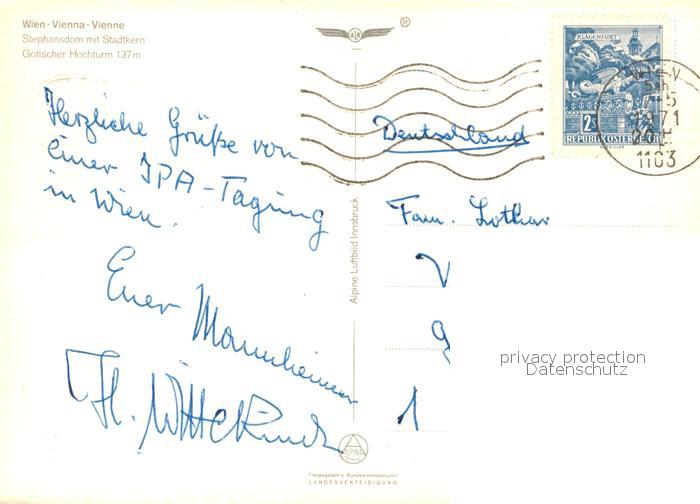 Wien - Vienna - Vienne
Stephansdom mit Stadtkern
Gotischer Hochturm 137 m
®
KLAGENFURT
2 S
REPUBLIK ÖSTERREICH
WIEN
1971
1103
Herzliche Grüße von
einer IPA-Tagung
in Wien.
Euer Mannheimer
H. Wittekind
Alpine Luftbild Innsbruck
Deutschland
Fam. Lothar
V
g
1
privacy protection
Datenschutz
ALPINE
Freigegeben v. Bundesministerium f.
LANDESVERTEIDIGUNG